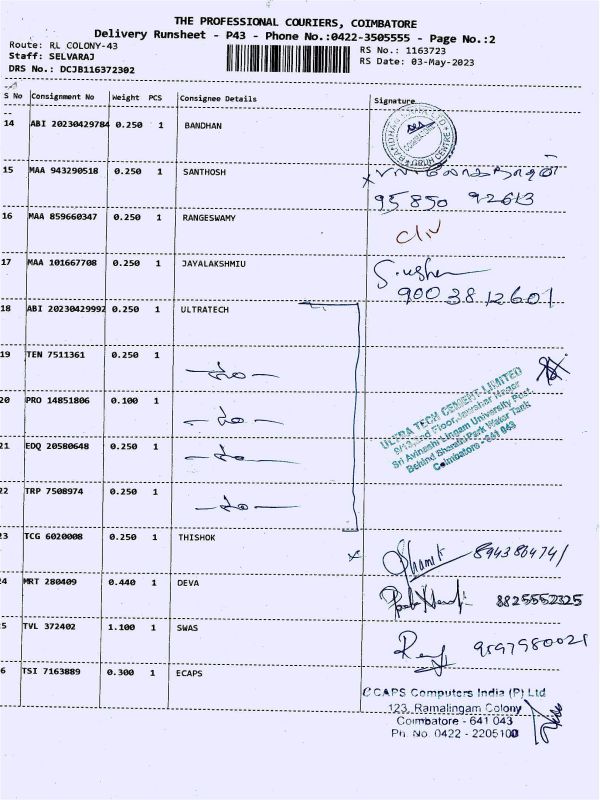 THE PROFESSIONAL COURIERS, COIMBATORE
Delivery Runsheet - P43 - Phone No.:0422-3505555 - Page No.:2
Route: RL COLONY-43
RS No.: 1163723
Staff: SELVARAJ
RS Date: 03-May-2023
DRS No.: DCJB116372302
S No Consignment No Weight PCS Consignee Details Signature
14 ABI 20230429784 0.250 1 BANDHAN
15 MAA 943290518 0.250 1 SANTHOSH
95850 92613
16 MAA 859660347 0.250 1 RANGESWAMY
17 MAA 101667708 0.250 1 JAYALAKSHMIU
9003812601
18 ABI 20230429992 0.250 1 ULTRATECH
19 TEN 7511361 0.250 1 -do-
20 PRO 14851806 0.100 1 -do-
21 EDQ 20580648 0.250 1 -do-
22 TRP 7508974 0.250 1 -do-
ULTRA TECH CEMENT LIMITED
Sri Avinashi Lingam University Post
Behind Sharathi Park Water Tank
Coimbatore - 641 043
23 TCG 6020008 0.250 1 THISHOK
24 MRT 280409 0.440 1 DEVA
8825552325
5 TVL 372402 1.100 1 SWAS
9597980021
6 TSI 7163889 0.300 1 ECAPS
CCAPS Computers India (P) Ltd
123, Ramalingam Colony
Coimbatore - 641 043
Ph. No. 0422 - 2205100